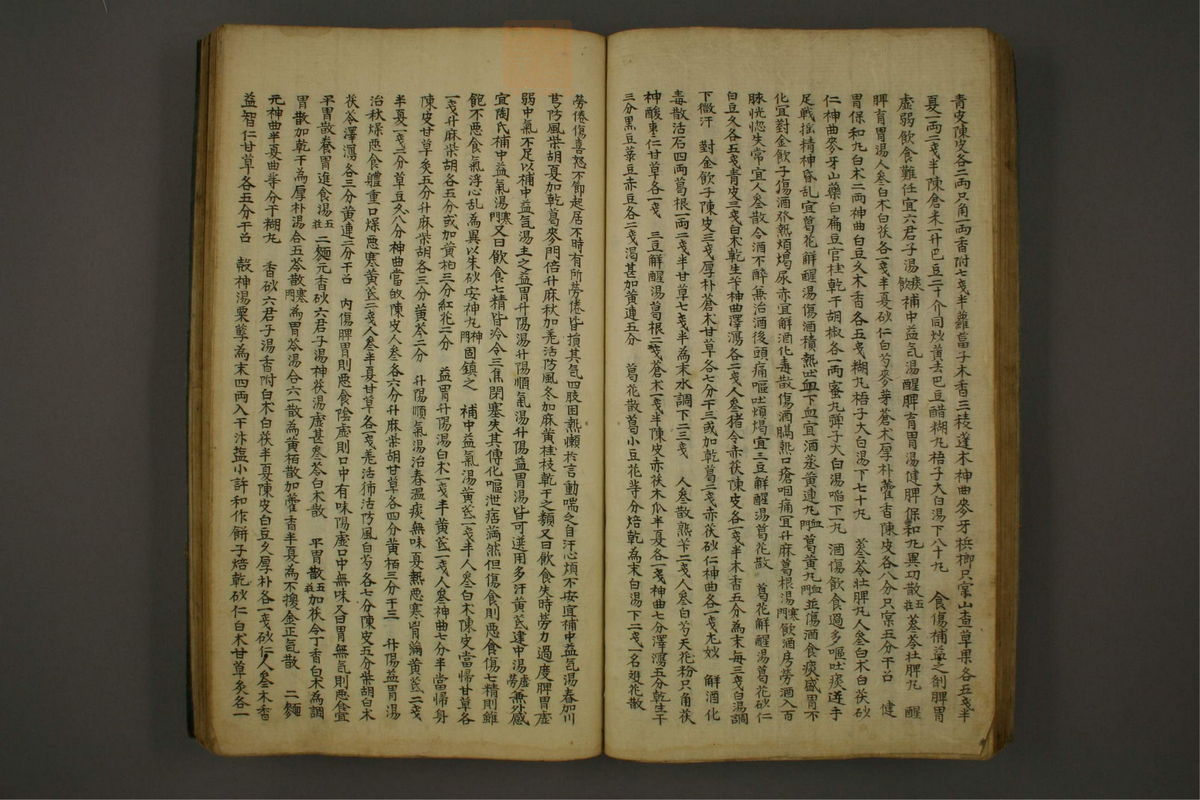 青皮陳皮各二兩只角一兩香附七戔半蘿葍子木香三稜蓬朮神曲麥牙梹榔只宲山査草果各五戔半
夏一兩二戔半陳倉米一升巴豆二十介同炒黃去巴豆醋糊丸梧子大白湯下八十丸 食傷補益之劑脾胃
虛弱飮食難任宜六君子湯痰飮補中益气湯醒脾育胃湯健脾保和丸異功散五莊葠苓壯脾丸 醒
脾育胃湯人參白朮白茯各一戔半夏砂仁白芍麥芽蒼朮厚朴藿香陳皮各八分只宲五分干召 健
胃保和丸白朮二兩神曲白豆久木香各五戔糊丸梧子大白湯下七十丸 葠苓壯脾丸人參白朮白茯砂
仁神曲麥牙山藥白扁豆官桂乾干胡椒各一兩蜜丸彈子大白湯嚼下一丸 酒傷飮食過多嘔吐痰逆手
足戰搖精神昏乱宜葛花解醒湯傷酒積熱吐血下血宜酒蒸黃連丸血葛黃丸血並傷酒食痰盛胃不
化宜對金飮子傷酒發熱煩渴尿赤宜解酒化毒散傷酒膈熱口瘡咽痛宜升麻葛根湯寒門飮酒房勞酒入百
脉恍惚失常宜人參散令酒不醉無治酒後頭痛嘔吐煩渴宜三豆解醒湯葛花散 葛花解醒湯葛花砂仁
白豆久各五戔青皮三戔白朮乾生干神曲澤瀉各二戔人參猪令赤茯陳皮各一戔半木香五分爲末每三戔白湯調
下微汗 對金飮子陳皮三戔厚朴蒼朮甘草各七分干三或加乾葛二戔赤茯砂仁神曲各一戔尤妙 解酒化
毒散活石四兩葛根一兩二戔半甘草七戔半爲末水調下二三戔 人參散熟芐二戔人參白芍天花粉只角茯
神酸棗仁甘草各一戔 三豆解醒湯葛根二戔蒼朮一戔半陳皮赤茯木瓜半夏各一戔神曲七分澤瀉五分乾生干
三分黑豆菉豆赤豆各二戔渴甚加黃連五分 葛花散葛小豆花等分焙乾爲末白湯下二戔一名雙花散
勞倦傷喜怒不節起居不時有所劳倦皆損其气四肢困熱懶扵言動喘之自汗心煩不安宜補中益气湯春加川
芎防風柴胡夏加乾葛麥門倍升麻秋加羌活防風冬加麻黃桂枝乾干之類又曰飮食失時勞力過度脾胃虛
弱中氣不足以補中益气湯主之益胃升陽湯升陽順氣湯升陽益胃湯皆可選用多汗黃芪建中湯虛勞無外感
宜陶氏補中益氣湯寒門又曰飮食七精皆冷令三焦閉塞失其傳化嘔泄痞満然但傷食則惡食傷七精則雖
飽不惡食氣浮心乱爲異以朱砂安神丸神門固鎮之 補中益氣湯黃芪一戔半人參白朮陳皮當帰甘草各
一戔升麻柴胡各五分或加黃栢三分紅花二分 益胃升陽湯白朮一戔半黃芪一戔人參神曲七分半當帰身
陳皮甘草炙五分升麻柴胡各三分黃芩二分 升陽順氣湯治春溫痰無味夏熱惡寒胃滿黃芪二戔
半夏一戔二分草豆久八分神曲當帰陳皮人參各六分升麻柴胡甘草各四分黃栢三分干三 升陽益胃湯
治秋燥惡食軆重口燥惡寒黃芪二戔人參半夏甘草各一戔羌活獨活防風白芍各七分陳皮五分柴胡白朮
茯苓澤瀉各三分黃連二分干召 內傷脾胃則惡食陰虛則口中有味陽虛口中無味又曰胃無気則惡食宜
平胃散養胃進食湯五莊二麵元香砂六君子湯神茯湯虛甚參苓白朮散 平胃散五莊加茯令丁香白朮爲調
胃散加乾干爲厚朴湯合五苓散寒門爲胃苓湯合六一散爲黃栢散加藿香半夏爲不換金正気散 二麵
元神曲半夏曲等分干糊丸 香砂六君子湯香附白朮白茯半夏陳皮白豆久厚朴各一戔砂仁人參木香
益智仁甘草各五分干召 殼神湯粟孽爲末四兩入干汁塩小許和作餅子焙乾砂仁白朮甘草炙各一